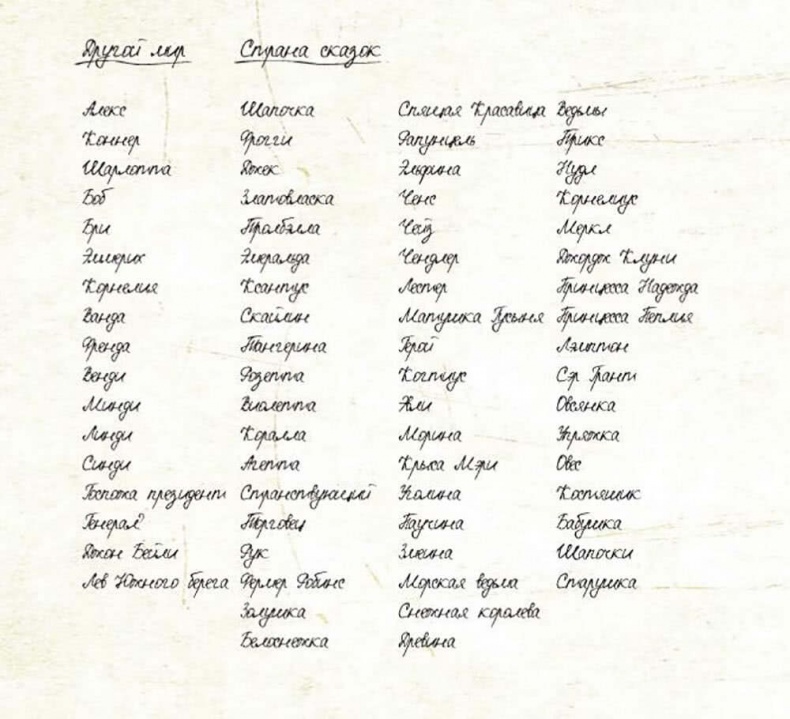 Другой мир
Алекс
Коннер
Шарлотта
Боб
Бри
Эмерих
Корнелия
Ванда
Френда
Венди
Минди
Линди
Синди
Госпожа президент
Генерал
Джон Бейли
Лев Южного берега
Страна сказок
Шапочка
Фрогги
Джек
Златовласка
Тролбэлла
Эмеральда
Ксантус
Скайлин
Тангерина
Розетта
Виолетта
Коралла
Агетта
Странствующий
Торговец
Рук
Фермер Робинс
Золушка
Белоснежка
Спящая Красавица
Рапунцель
Эльфина
Ченс
Чейз
Чендлер
Лестер
Матушка Гусыня
Герой
Когтиус
Морина
Крыса Мэри
Уголина
Паучина
Змеина
Морская ведьма
Снежная королева
Древина
Ведьмы
Трикс
Нудл
Корнелиус
Меркл
Джордж Клуни
Принцесса Надежда
Принцесса Пеплия
Лэмптон
Сэр Грант
Овсянка
Упряжка
Овес
Костяшик
Бабушка
Шапочки
Старушка